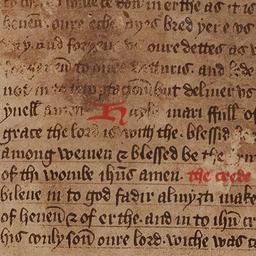 in erthe as it is
heuen . oure eche bred yeue vs
and foryeue vs oure dettes as w
to oure detturis . and lede
not in to temptacioun but deliuer vs
yuell amen Heyle mari ffull of
grace the lord is with the . blessid
among wemen & blessed be the
of th wombe ihūs amen . the crede
bileue in to god fadir almyȝti make
of heuen & of erthe . and in to ihū cr
his oonly son oure lord . wiche was c